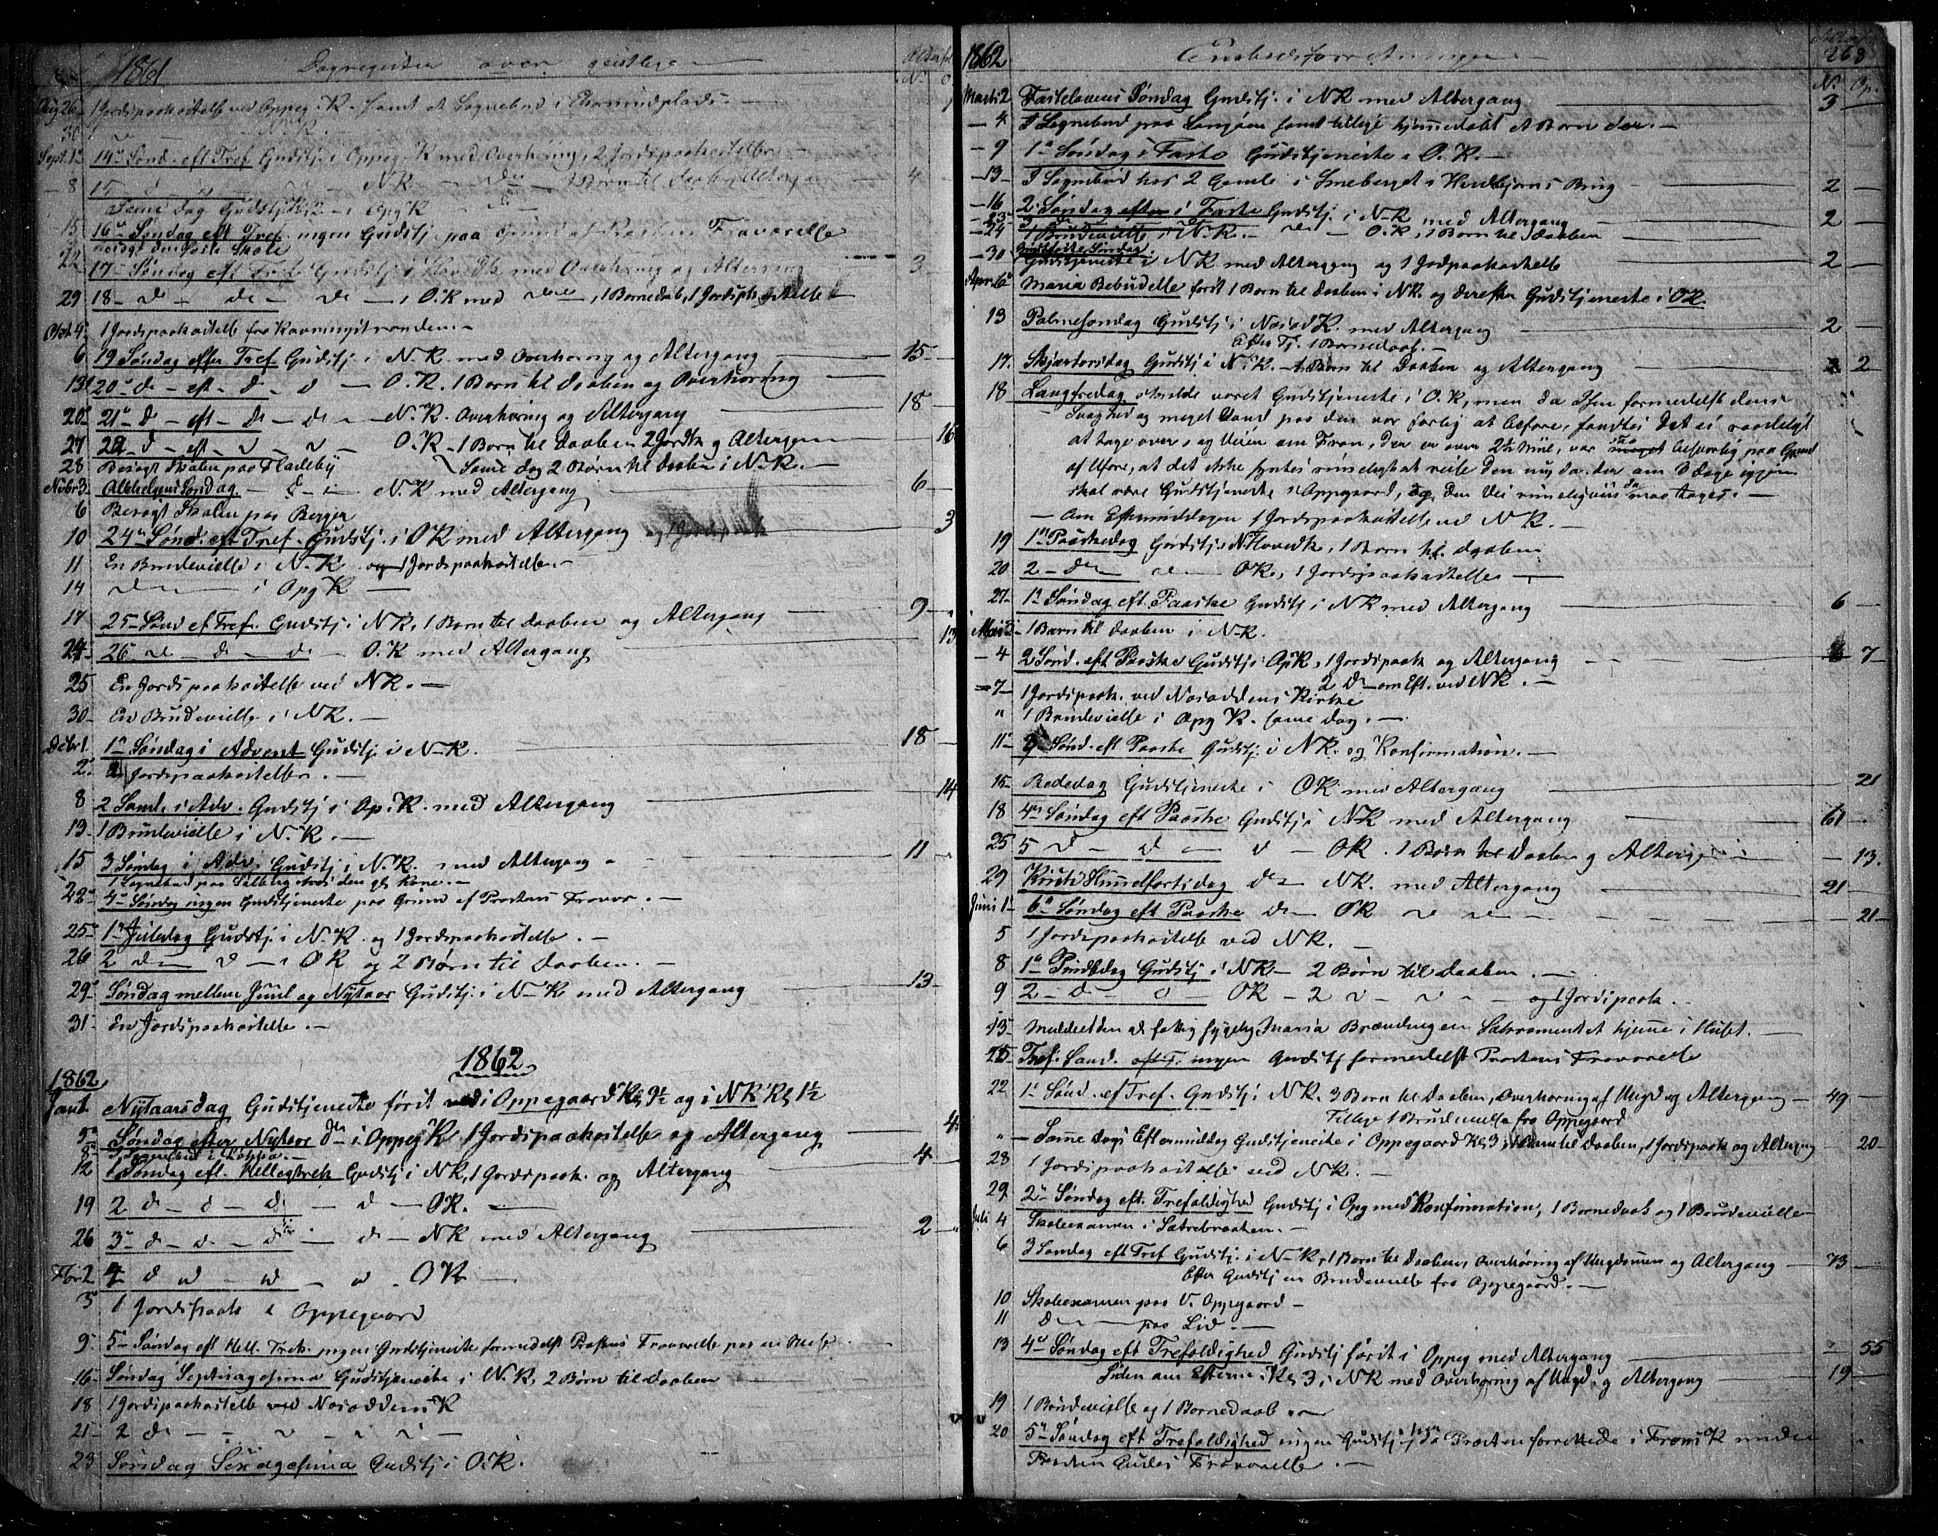 1861 Dagregister over geistlige
Aug 26 1 Jordspaakastelse ved Oppeg. K. samt et Sognebud i
30 1 — NK.
Sept. 1 14de Sønd. eft Tref. Gudstj. i Oppeg. K med Overhøring, 2 Jordspaakastelser
8 15 — d — NK — 1 Børn til Daaben, Altergang — 4
Samme dag Gudstj. Kl 2 i Opg K
15 16de Søndag eft Tref. ingen Gudstj. paa Grund af Provstens Fraværelse
22 17 Søndag eft Tref. Gudstj. i med Overhøring og Altergang 3
29 18 — d — de — de — i O.K med 1 Barnedaab, 1 Jordspk. og
Okt 4 1 Jordspaakastelse fra
6 19 Søndag efter Tref. Gudstj. i N.K. med Overhøring og Altergang — 15
13 20de — d — eft — d — d — O.K. 1 Barn til Daaben og Overhøring
20 21de — d — eft — de — de — N.K. Overhøring og Altergang — 18
27 22 — d — eft — O.K. 1 Barn til Daaben 2 Jordspk. og Altergang — 16
28 Besøgt Skolen paa Fladeby Samme dag 2 Børn til Daaben i N.K.
Novbr 3 Allehelgens Søndag — d — i — N.K med Altergang 6
6 Besøgt Skolen paa Berger
10 24de Sønd. eft Tref. Gudstj. i OK med Altergang og 1 Jordspaak 3
11 En Brudevielse i N.K. og 1 Jordspaakastelse
14 — i Opg K —
17 25 Sønd ef Tref. Gudstj. i NK, 1 Barn til Daaben og Altergang — 9
24 26 — d — de — O.K med Altergang 13
25 En Jordspaakastelse ved NK.
30 En Brudevielse i NK.
Dcbr 1 1ste Søndag i Advent Gudstj. i N-K. 18
2 2 Jordspaakastelser.
8 2 Sønd. i Adv. Gudstj. i Op. K. med Altergang — 14
13 1 Brudevielse i N.K.
15 3 Søndag i Adv. Gudstj. i N.K. med Altergang 11
1 Sognebud paa
22 4de Søndag ingen Gudstjeneste paa Grund af Provstens Fravær.
25 1ste Juledag Gudstj. i N.K. og 1 Jordspaakastelse.
26 2 d — d — i OK og 2 Børn til Daaben.
29 Søndag mellem Juul og Nytaar Gudstj. i N-K med Altergang — 13
31 En Jordspaakastelse.
1862
1862
Jan 1 Nytaarsdag Gudstjeneste først i Oppegaard Kl 9½ og i NK Kl 1½
5 Søndag efter Nytaar d i Oppeg K 1 Jordspaakastelse og Altergang — 4
8 1 Sognebud i
12 1 Søndag eft. Hellegtrek Gudstj. i NK, 1 Jordspaak. og Altergang — 4
19 2 d — d — d — d — OK.
26 3 d — d — d — d — NK med Altergang — 2
Fbr 2 4 d — OK
5 1 Jordspaak i Oppegaard
9 5 Søndag eft Hell. Trek. ingen Gudstjeneste formedelst Provstens Fraværelse paa en Reise
16 Søndag Septuagesima Gudstjeneste i N.K, 2 Børn til Daaben
18 1 Jordspaakastelse ved Næsoddens K
21 2 de
23 Søndag Sexagesima Gudstj. i O.K.
1862 Embedsforretninger 263
N. Op.
Marts 2 Fastelavens Søndag Gudstj. i NK med Altergang 3
4 1 Sognebud paa Langøen samt tillige hjemmedøbt et Barn der.
9 1ste Søndag i Faste Gudstjeneste i O.K.
13 1 Sognebud hos 2 Gamle i Smeberget i Brug 2
16 2 Søndag i Faste Gudstj. i N-K med Altergang 2
23 3 d O.K, 1 Barn til Daaben
24 1 Brudevielse i N.K.
30 Midfaste Søndag Gudstjeneste i NK med Altergang og 1 Jordpaakastelse 2
April 6 Maria Bebudelse først 1 Barn til Daaben i NK. og derefter Gudstjeneste i OK.
13 Palmesøndag Gudstj. i Næsod K. med Altergang 2
Efter Tj. 1 Barnedaab.
17 Skjærtorsdag Gudstj i N.K. 1 Barn til Daaben og Altergang 2
18 Langfredag skulde været Gudstjeneste i O.K, men da Isen formedelst dens
Svaghed og meget Vand paa den var farlig at befare, fandtes det ei raadeligt
at tage over, og Veien om Fron, der er over 2½ Miil, var saa besværlig paa Grund
af Uføre, at det ikke syntes rimeligt at reise den nu da der om 8 dage igjen
skal være Gudstjeneste i Oppegaard, og den Vei rimeligviis da maa tages.
Om Eftermiddagen 1 Jordspaakastelse ved N.K.
19 1ste Paaskedag Gudstj. i N Hovedk, 1 Barn til Daaben
20 2 — de — OK, 1 Jordspaakastelse
27 1ste Søndag eft Paaske Gudstj i NK med Altergang 6
Mai 3 1 Barn til Daaben i N-K.
4 2 Sønd. eft Paaske Gudstj. i OpK, 1 Jordspaak og Altergang 7
2 d — om Eft. ved NK.
7 1 Jordspaak. ved Næsoddens Kirke
" 1 Brudevielse i Opg K. samme Dag.
11 3 Sønd. eft Paaske Gudstj. i NK. og Konfirmation.
15 Bededag Gudstjeneste i OK med Altergang 21
18 4de Søndag eft Paaske Gudstj i NK med Altergang 61
25 5 d — d — d — OK. 1 Barn til Daaben og Altergang 13.
29 Kristi Himmelfartsdag de — NK. med Altergang 21
Juni 1 6te Søndag eft Paaske de — OK 21
5 1 Jordspaakastelse ved NK.
8 1ste Pindsedag Gudstj i NK — 2 Børn til Daaben.
9 2 — d — OK — 2 og 1 Jordspaak.
13 Meddeelt den Maria Brændingen Sakramentet hjemme i Huset.
15 Tref. Sønd. ingen Gudstj formedelst Provstens Fraværelse
22 1 Sønd. ef Tref. Gudstj i NK. 3 Børn til Daaben, Overhøring af Ungd og Altergang 49
Tillige 1 Brudevielse fra Oppegaard
" Samme Dags Eftermiddag Gudstjeneste i Oppegaard Kl 3, Barn til Daaben, 1 Jordspaak og Altergang 20
28 1 Jordspaakastelse ved NK.
29 2 Søndag eft. Trefoldighed Gudstj i Opg med Konfirmation, 1 Barnedaab og 1 Brudevielse
Juli 4 Skoleexamen i Sætrebraaten.
6 3 Søndag eft Tref Gudstj. i N-K, 1 Barn til Daaben, Overhøring af Ungdommen og Altergang 73
Efter Gudstj en Brudevielse fra Oppegaard.
10 Skoleexamen paa V. Oppegaard
11 de paa Lid.
13 4de Søndag eft Trefoldighed Gudstj først i Oppeg med Altergang 55
Siden om Efterm. Kl 3 i NK med Overhøring af Ungd. og Altergang 19
19 1 Brudevielse og 1 Barnedaab
20 5te Søndag eft Trefoldighed ingen Gudstj da Provsten forrettede i Frons K under
Gudes Fraværelse.